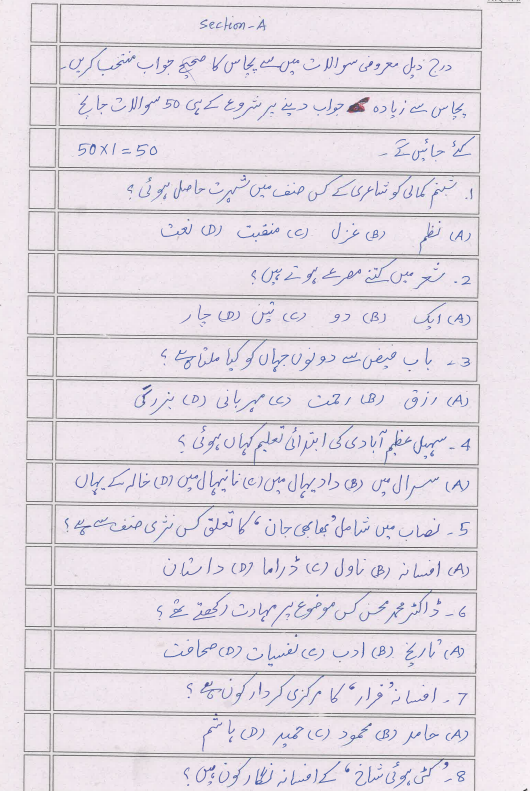 Section-A
درج ذیل معروضی سوالات میں سے پچاس کا صحیح جواب منتخب کریں۔
پچاس سے زیادہ جواب دینے پر شروع کے ہی 50 سوالات جانچ
کئے جائیں گے ۔ 50x1=50
1. شبنم کمالی کو شاعری کے کس صنف میں شہرت حاصل ہوئی ؟
(A) نظم (B) غزل (C) منقبت (D) نعت
2. شعر میں کتنے مصرعے ہوتے ہیں؟
(A) ایک (B) دو (C) تین (D) چار
3 ۔ باب فیض سے دونوں جہاں کو کیا ملتا ہے ؟
(A) رزق (B) رحمت (C) مہربانی (D) بزرگی
4 ۔ سہیل عظیم آبادی کی ابتدائی تعلیم کہاں ہوئی ؟
(A) سسرال میں (B) دادیہال میں (C) نانیہال میں (D) خالہ کے یہاں
5 ۔ نصاب میں شامل 'بھابھی جان' کا تعلق کس نثری صنف سے ہے؟
(A) افسانہ (B) ناول (C) ڈراما (D) داستان
6 ۔ ڈاکٹر محمد محسن کس موضوع پر مہارت رکھتے تھے ؟
(A) تاریخ (B) ادب (C) نفسیات (D) صحافت
7 ۔ افسانہ 'فرار' کا مرکزی کردار کون ہے ؟
(A) حامد (B) محمود (C) حمید (D) ہاشم
8 ۔ 'کٹی ہوئی شاخ' کے افسانہ نگار کون ہیں ؟